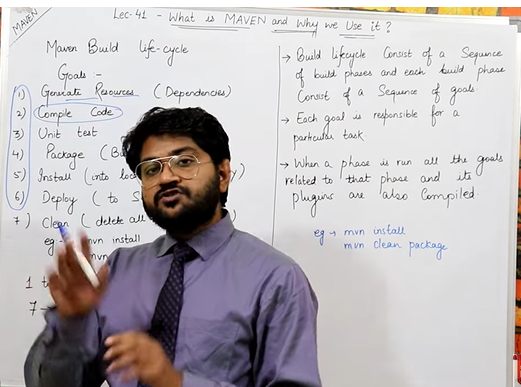 MAVEN
Lec-41 - What is MAVEN and Why we Use it?
Maven Build life-cycle
Goals :-
1) Generate Resources (Dependencies)
2) Compile Code
3) Unit test
4) Package (
5) Install (into
6) Deploy (to
7) Clean (delete all
eg:- mvn install
mvn
1
7 -
→ Build lifecycle Consist of a Sequence
of build phases and each build phase
Consist of a Sequence of goals.
→ Each goal is responsible for a
particular task.
→ When a phase is run all the goals
related to that phase and its
plugins are also Compiled.
eg → mvn install
mvn clean package